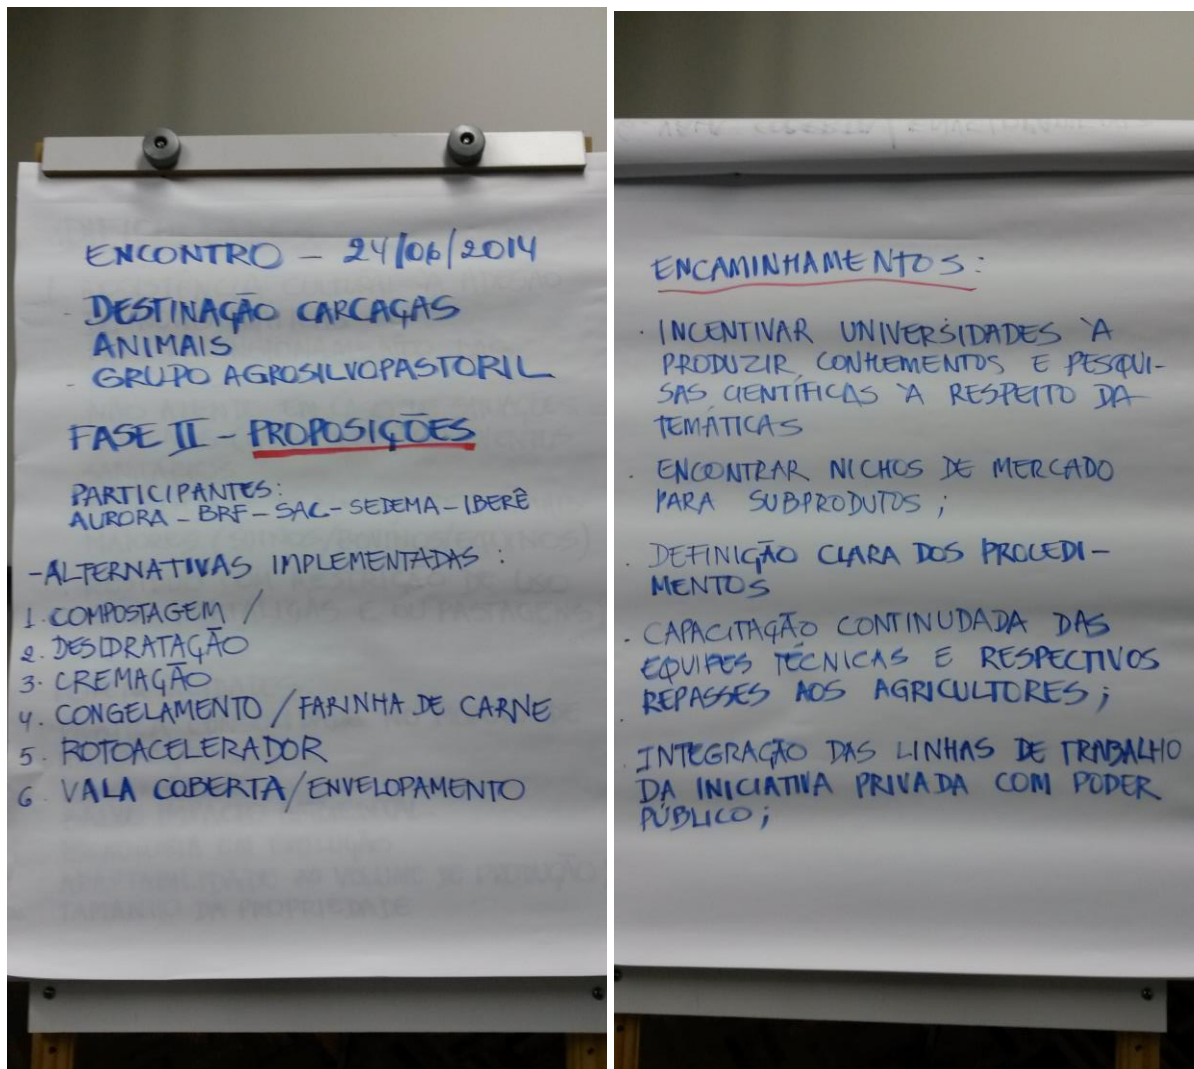 ENCONTRO – 24/06/2014
- DESTINAÇÃO CARCAÇAS
ANIMAIS
- GRUPO AGROSILVOPASTORIL
FASE II – PROPOSIÇÕES
PARTICIPANTES:
AURORA – BRF – SAC – SEDEMA – IBERÊ
- ALTERNATIVAS IMPLEMENTADAS:
1. COMPOSTAGEM /
2. DESIDRATAÇÃO
3. CREMAÇÃO
4. CONGELAMENTO / FARINHA DE CARNE
5. ROTOACELERADOR
6. VALA COBERTA/ENVELOPAMENTO
ENCAMINHAMENTOS:
· INCENTIVAR UNIVERSIDADES À
PRODUZIR CONHEMENTOS E PESQUI-
SAS CIENTÍFICAS À RESPEITO DA
TEMÁTICAS
· ENCONTRAR NICHOS DE MERCADO
PARA SUBPRODUTOS;
· DEFINIÇÃO CLARA DOS PROCEDI-
MENTOS
· CAPACITAÇÃO CONTINUDADA DAS
EQUIPES TÉCNICAS E RESPECTIVOS
REPASSES AOS AGRICULTORES;
· INTEGRAÇÃO DAS LINHAS DE TRABALHO
DA INICIATIVA PRIVADA COM PODER
PÚBLICO;